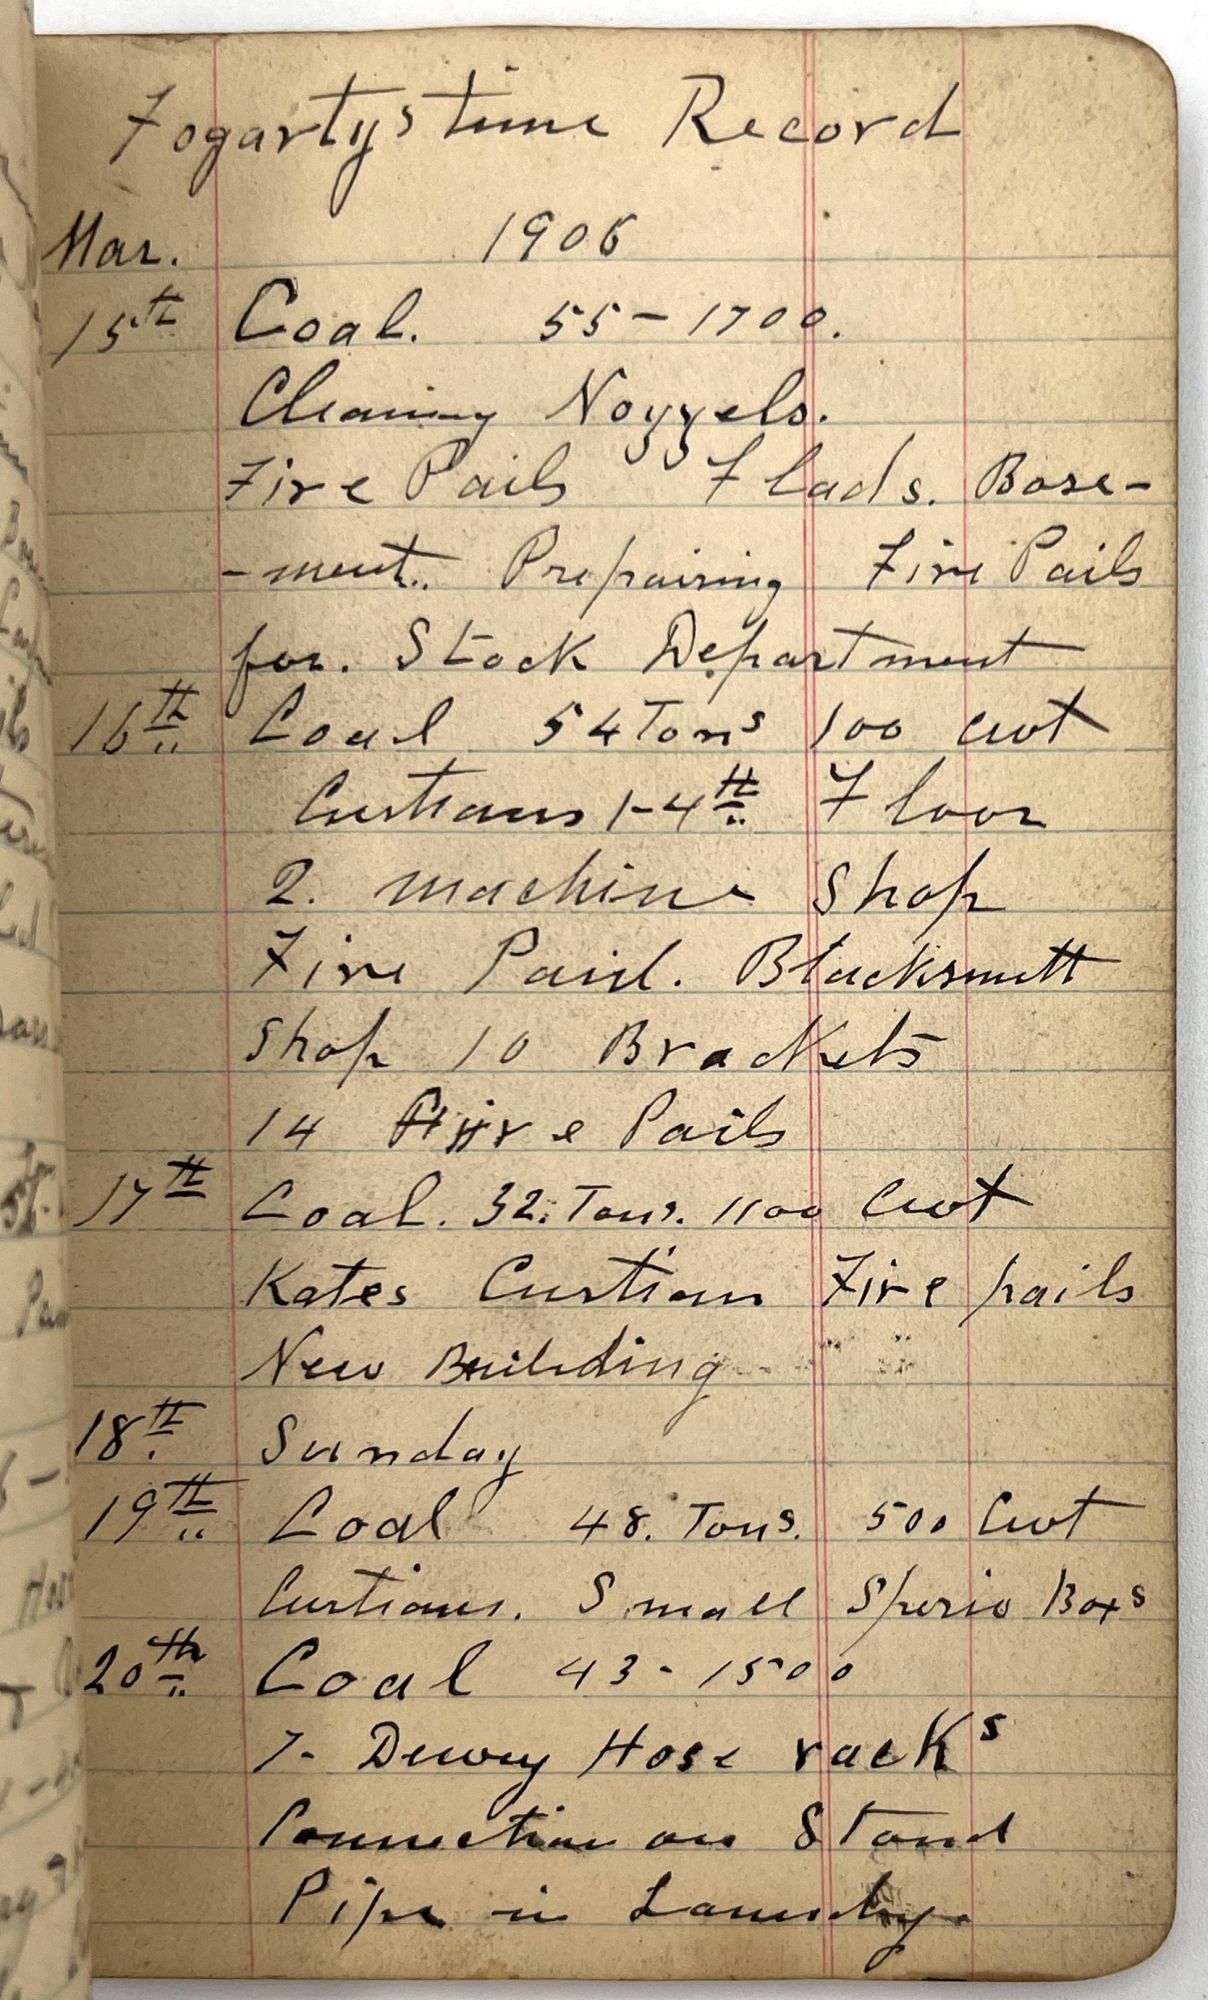 Fogartys time Record
Mar. 1906
15th Coal. 55-1700.
Cleaning Nozzels.
Fire Pails 7 lads. Base-
-ment. Prepairing Fire Pails
for. Stock Department
16th Coal 54 Tons 100 cwt
Curtians 1-4th Floor
2. machine Shop
Fire Paid. Blacksmith
Shop 10 Brackets
14 Fire Pails
17th Coal. 32. Tons. 1100 Cwt
Kates Curtian Fire pails
New Building
18th Sunday
19th Coal 48. Tons. 500 Cwt
Curtians. Small Boxs
20th Coal 43-1500
7- Dewey Hose racks
Connection on Stand
Pipe in Laundry.